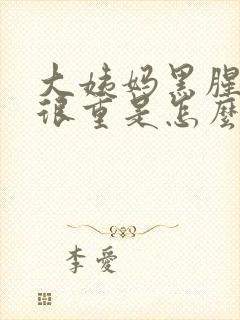 大姨妈黑腥
很重是怎麼
李愛